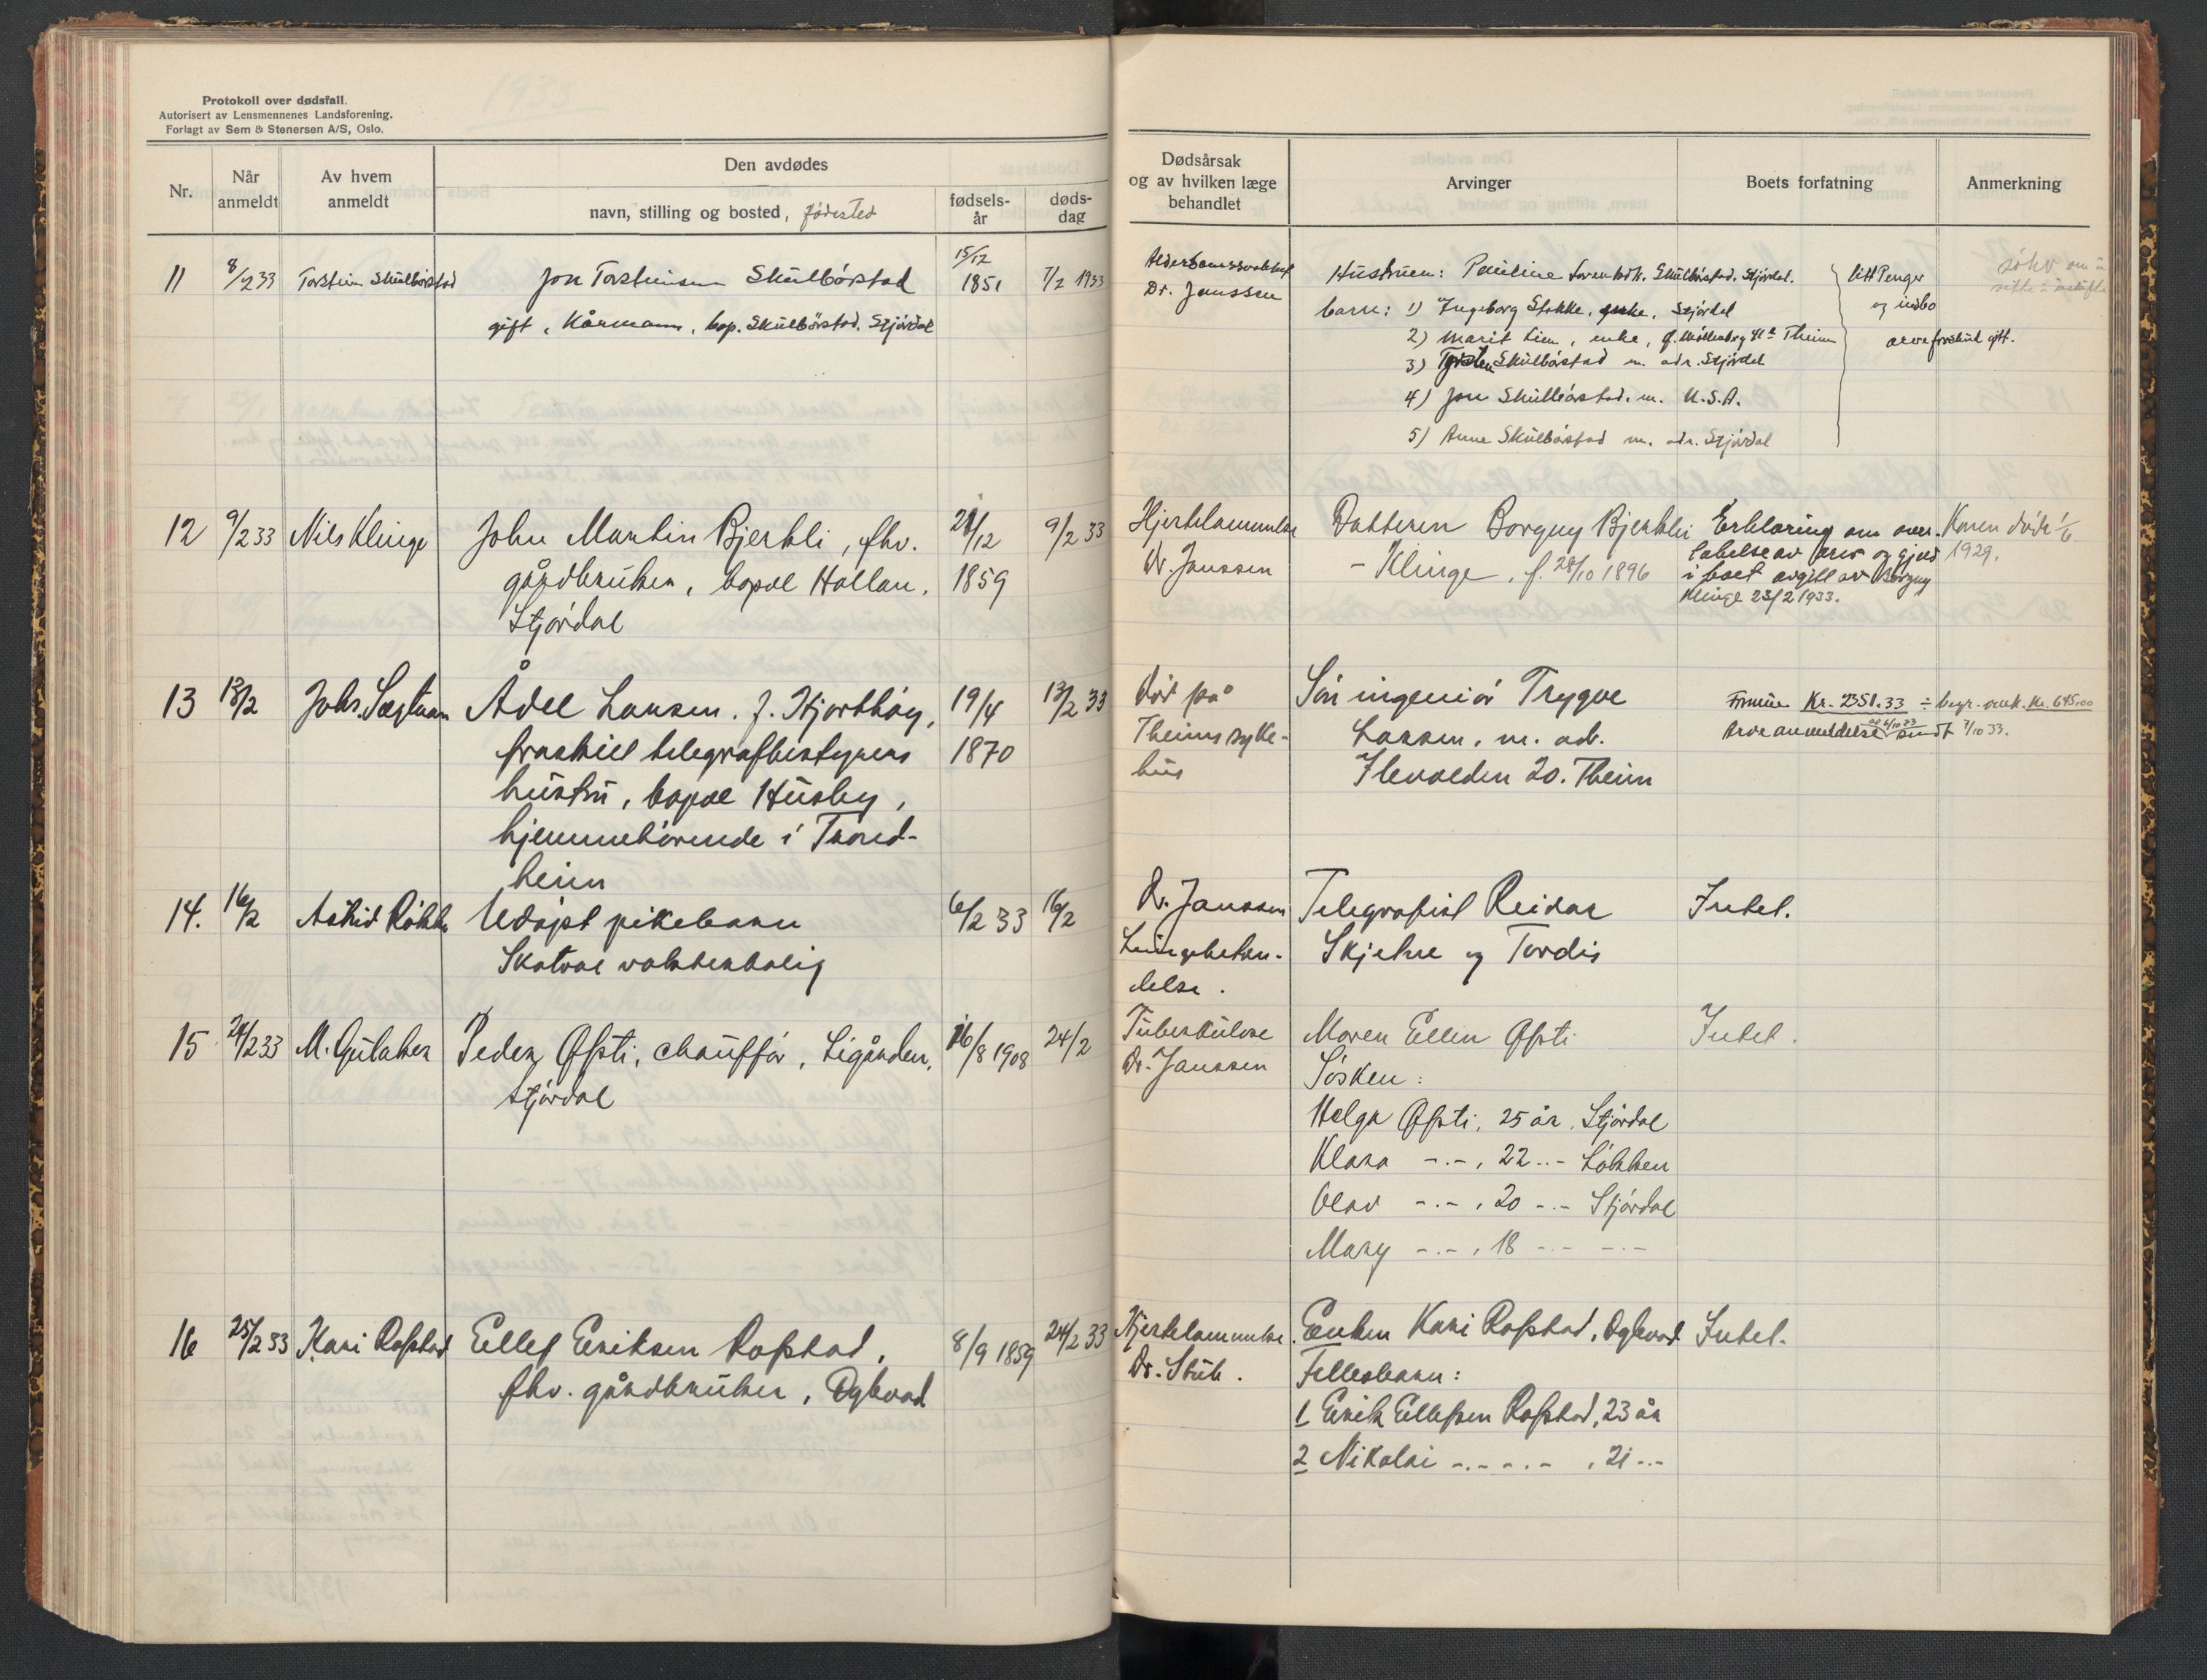 Protokoll over dødsfall.
Autorisert av Lensmennenes Landsforening.
Forlagt av Sem & Stenersen A/S, Oslo.
Nr.
Når anmeldt
Av hvem anmeldt
Den avdødes
navn, stilling og bosted, fødested
fødsels-år
døds-dag
11 8/2 33 Torstein Skulbörstad Jon Torsteinsen Skulbörstad 15/12 1851 7/2 1933
gift, Kårmann, bop. Skulbörstad. Stjördal
12 9/2 33 Nils Klinge John Martin Bjerkli, fhv. 21/12 9/2 33
gårdbruker, bopæl Hallan, 1859
Stjördal
13 13/2 Johs. Sægtnan Ådel Larsen. f. Hjorthöy, 19/4 13/2 33
fraskilt telegrafbestyrers 1870
hustru, bopæl Husby,
hjemmehörende i Trond-
heim
14. 16/2 Astrid Rökke Udöpt pikebarn 6/2 33 16/2
Skatval vokterbolig
15 24/2 33 M. Gulaker Peder Ofsti, chaufför, Ligården, 16/8 1908 24/2
Stjördal
16 25/2 33 Kari Rofstad Ellef Eriksen Rofstad, 8/9 1859 24/2 33
fhv. gårdbruker, Ogkvad
Dødsårsak
og av hvilken læge
behandlet
Arvinger
Boets forfatning
Anmerkning
Dr. Janssen
Hustruen: Pauline Skulbörstad. Stjördal.
barn: 1) Ingeborg Stokke, enke, Stjördal
2) Marit Lien, enke, Theim
3) Torsten Skulbörstad m. adr. Stjördal
4) Jon Skulbörstad. m. U.S.A.
5) Anne Skulbörstad m. adr. Stjördal
litt Penger
og indbo
arveforskud gitt.
Hjertelammelse Datteren Borguy Bjerkli Erklæring om over-
Dr. Janssen - Klinge, f. 28/10 1896
takelse av arv og gjeld
i boet avgitt av Borguy
Klinge 23/2 1933.
Konen död 1/6
1929.
Död på
Theims syke-
hus
Sön ingeniör Trygve
Larsen, m. adr.
Ilevolden 20. Theim
Formue Kr. 2351.33 ÷ begr. omk. Kr. 645.00
Arveanmeldelse sendt 7/10 33.
Dr. Janssen Telegrafist Reidar Intet.
Lungebeten-
delse.
Skjelve og Tordis
Tuberkulose Moren Ellen Ofsti Intet.
Dr. Janssen Sösken:
Helga Ofsti, 25 år, Stjördal
Klara -.-, 22 -.- Lökken
Olav -.-, 20 -.- Stjördal
Mary -.-, 18 -.- -.-
Hjertelammelse. Enken Kari Rofstad, Ogkvad Intet.
Dr. Stub. Fellesbarn:
1 Erik Ellefsen Rofstad, 23 år
2 Nikolai -.- -.-, 21 -.-